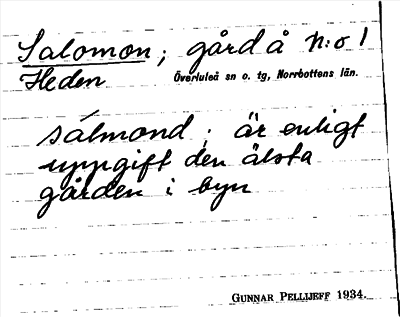 Salomon; gård å N:o 1
Heden Överluleå sn o. tg, Norrbottens län.
sálmond; är enligt
uppgift den älsta
gården i byn
GUNNAR PELLIJEFF 1934.